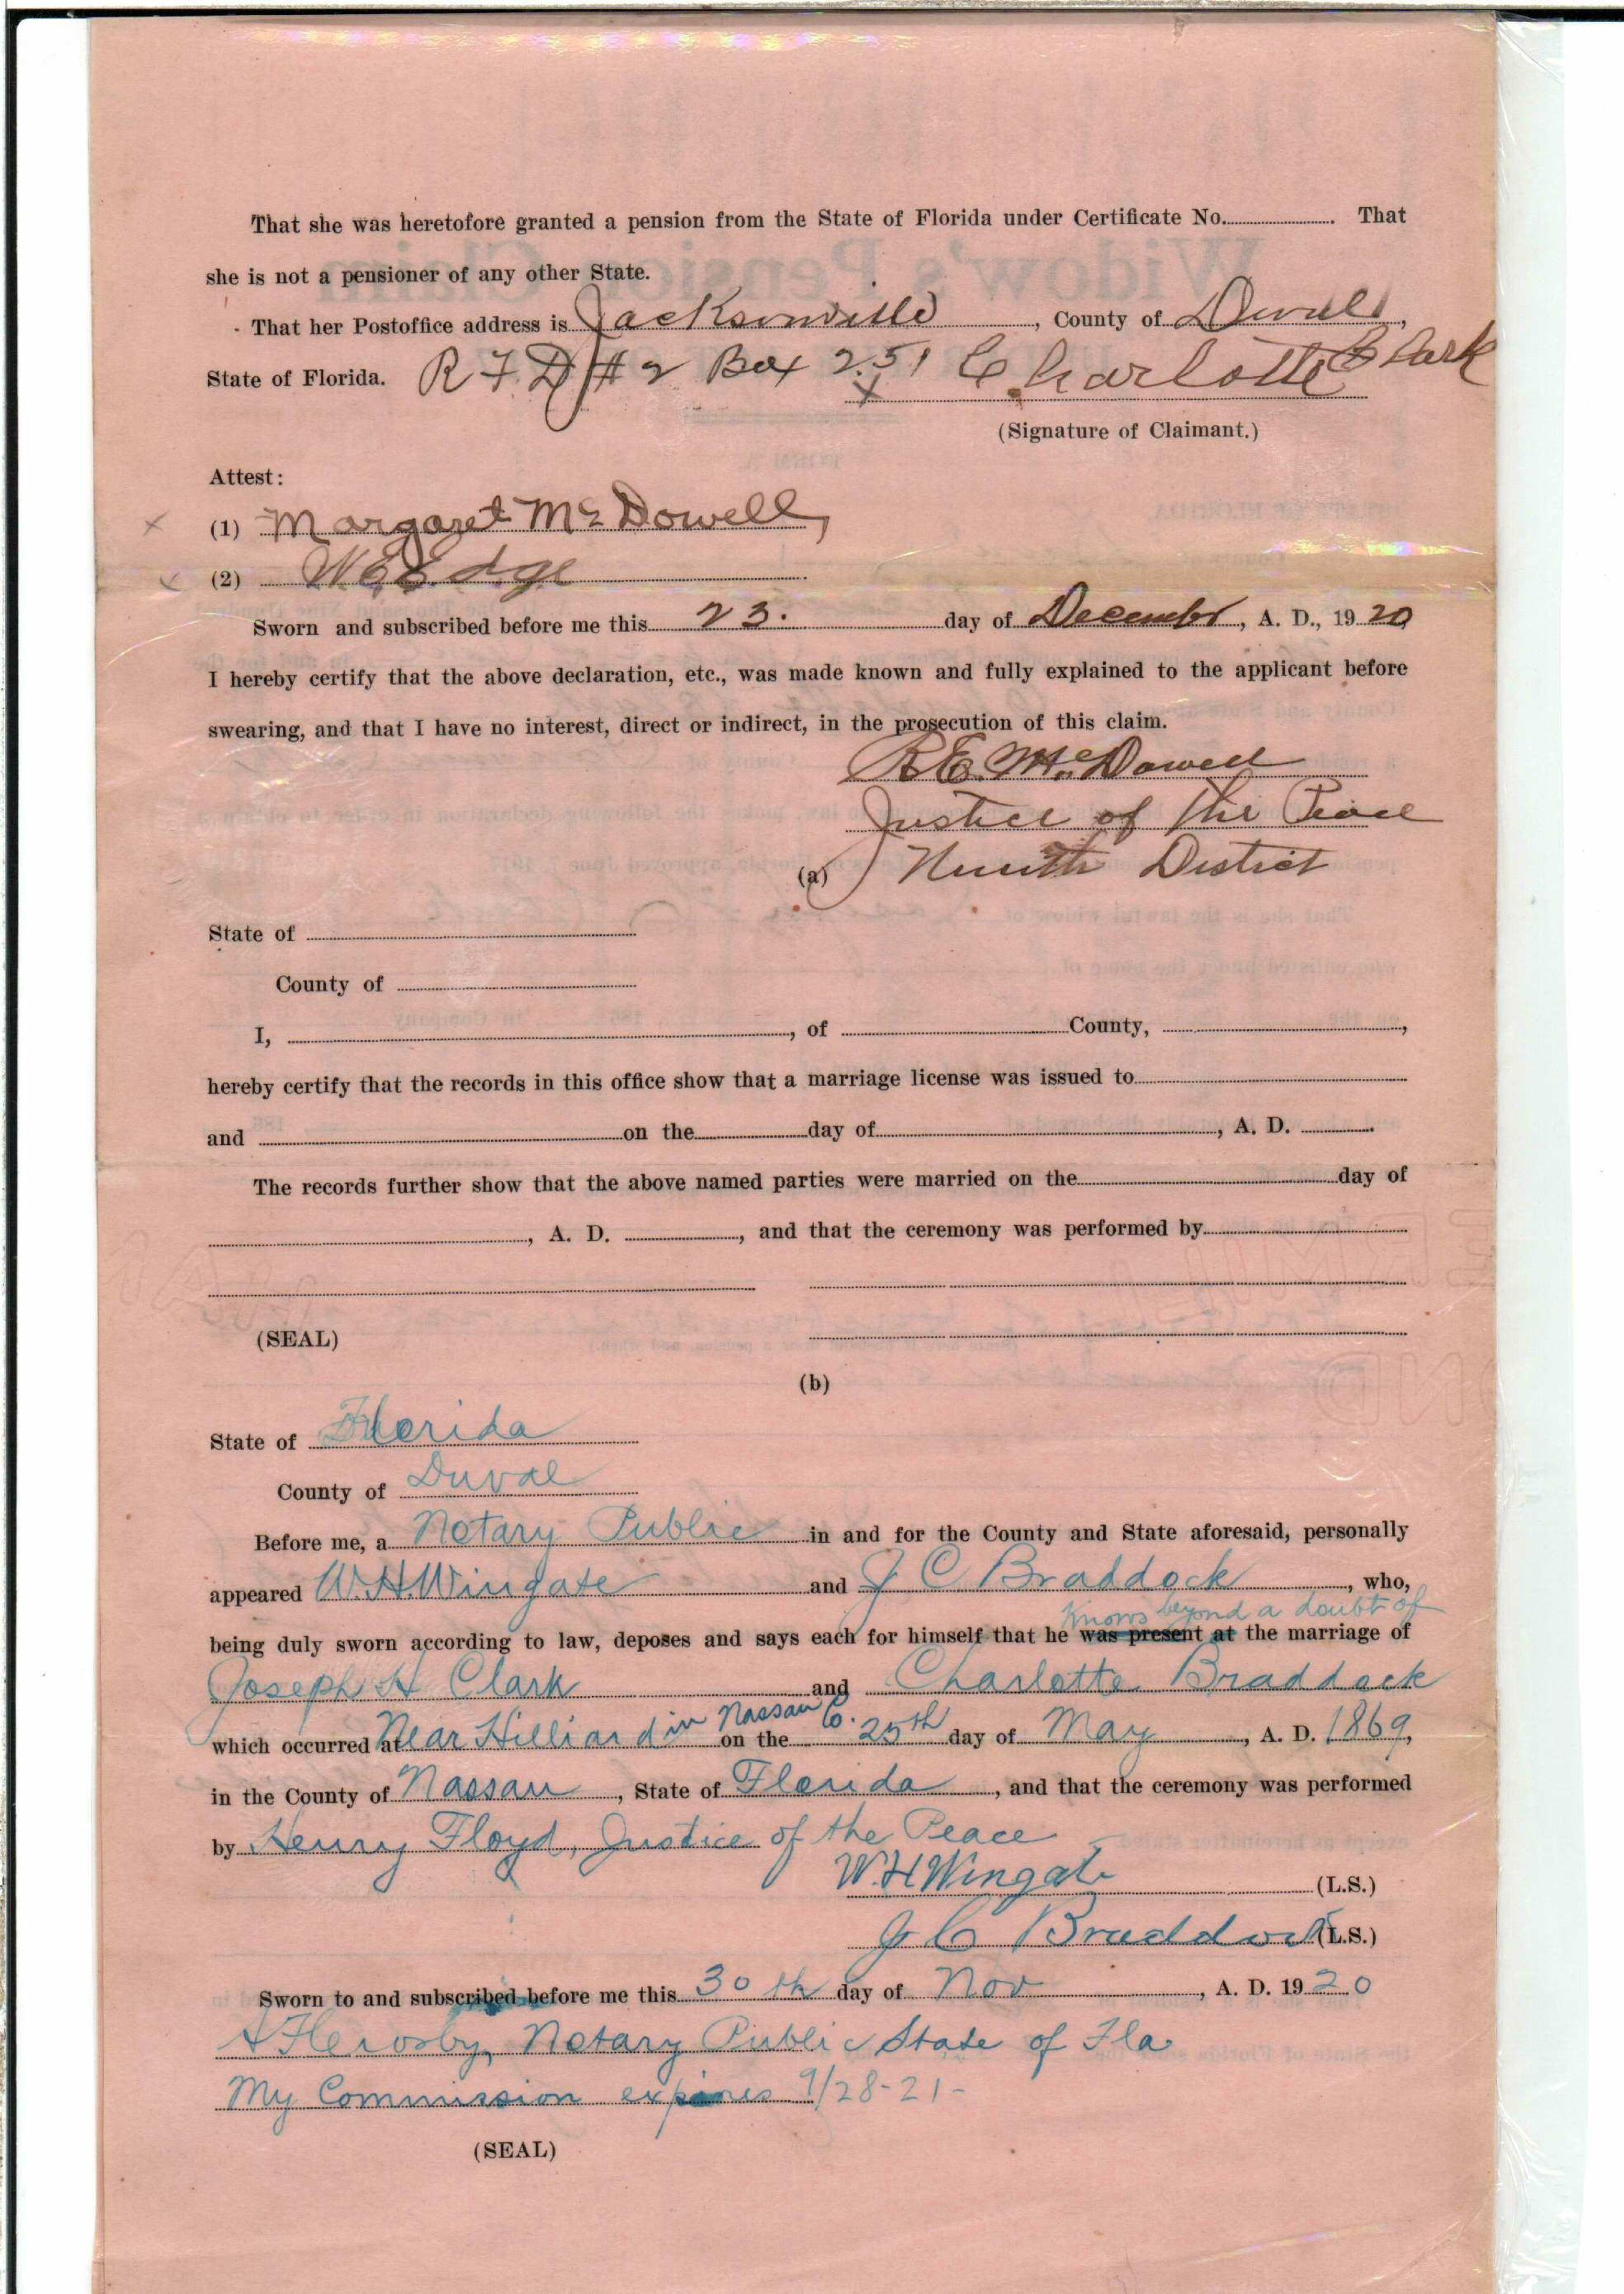 That she was heretofore granted a pension from the State of Florida under Certificate No. ........ That
she is not a pensioner of any other State.
That her Postoffice address is Jacksonville, County of Duval,
State of Florida. R F D #2 Box 251 Charlotte Clark
X
(Signature of Claimant.)
Attest:
X (1) Margaret McDowell,
X (2) W E Edge
Sworn and subscribed before me this 23. day of December, A. D., 1920
I hereby certify that the above declaration, etc., was made known and fully explained to the applicant before
swearing, and that I have no interest, direct or indirect, in the prosecution of this claim.
R.E. McDowell
Justice of the Peace
(a) District
State of
County of
I, , of County, ,
hereby certify that the records in this office show that a marriage license was issued to
and on the day of , A. D. .
The records further show that the above named parties were married on the day of
, A. D. , and that the ceremony was performed by
(SEAL)
(b)
State of Florida
County of Duval
Before me, a Notary Public in and for the County and State aforesaid, personally
appeared W.H. Wingate and J C Braddock, who,
knows beyond a doubt of
being duly sworn according to law, deposes and says each for himself that he was present at the marriage of
Joseph H Clark and Charlotte Braddock
which occurred at Near Hilliard in Nassau Co. on the 25th day of May, A. D. 1869,
in the County of Nassau, State of Florida, and that the ceremony was performed
by Henry Floyd, Justice of the Peace
W.H Wingate (L.S.)
J C Braddock (L.S.)
Sworn to and subscribed before me this 30th day of Nov, A. D. 1920
Notary Public State of Fla
My Commission expires 9/28-21-
(SEAL)